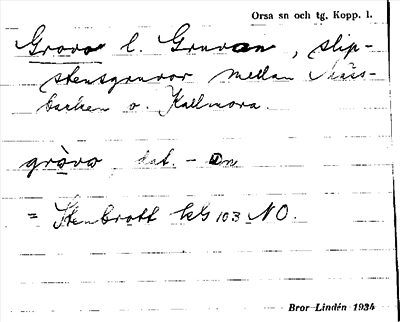 Orsa sn och tg. Kopp. l.
Grova l. Gruvan, slip-
stensgruvor mellan Mäss-
backen o. Kallmora.
gròva, dat. - on
= Stenbrott kG 103 NO.
Bror Lindén 1934